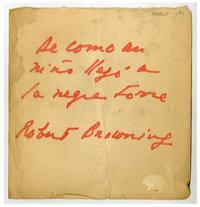 De como un
niño llegó a
la negra Torre
Robert Browning